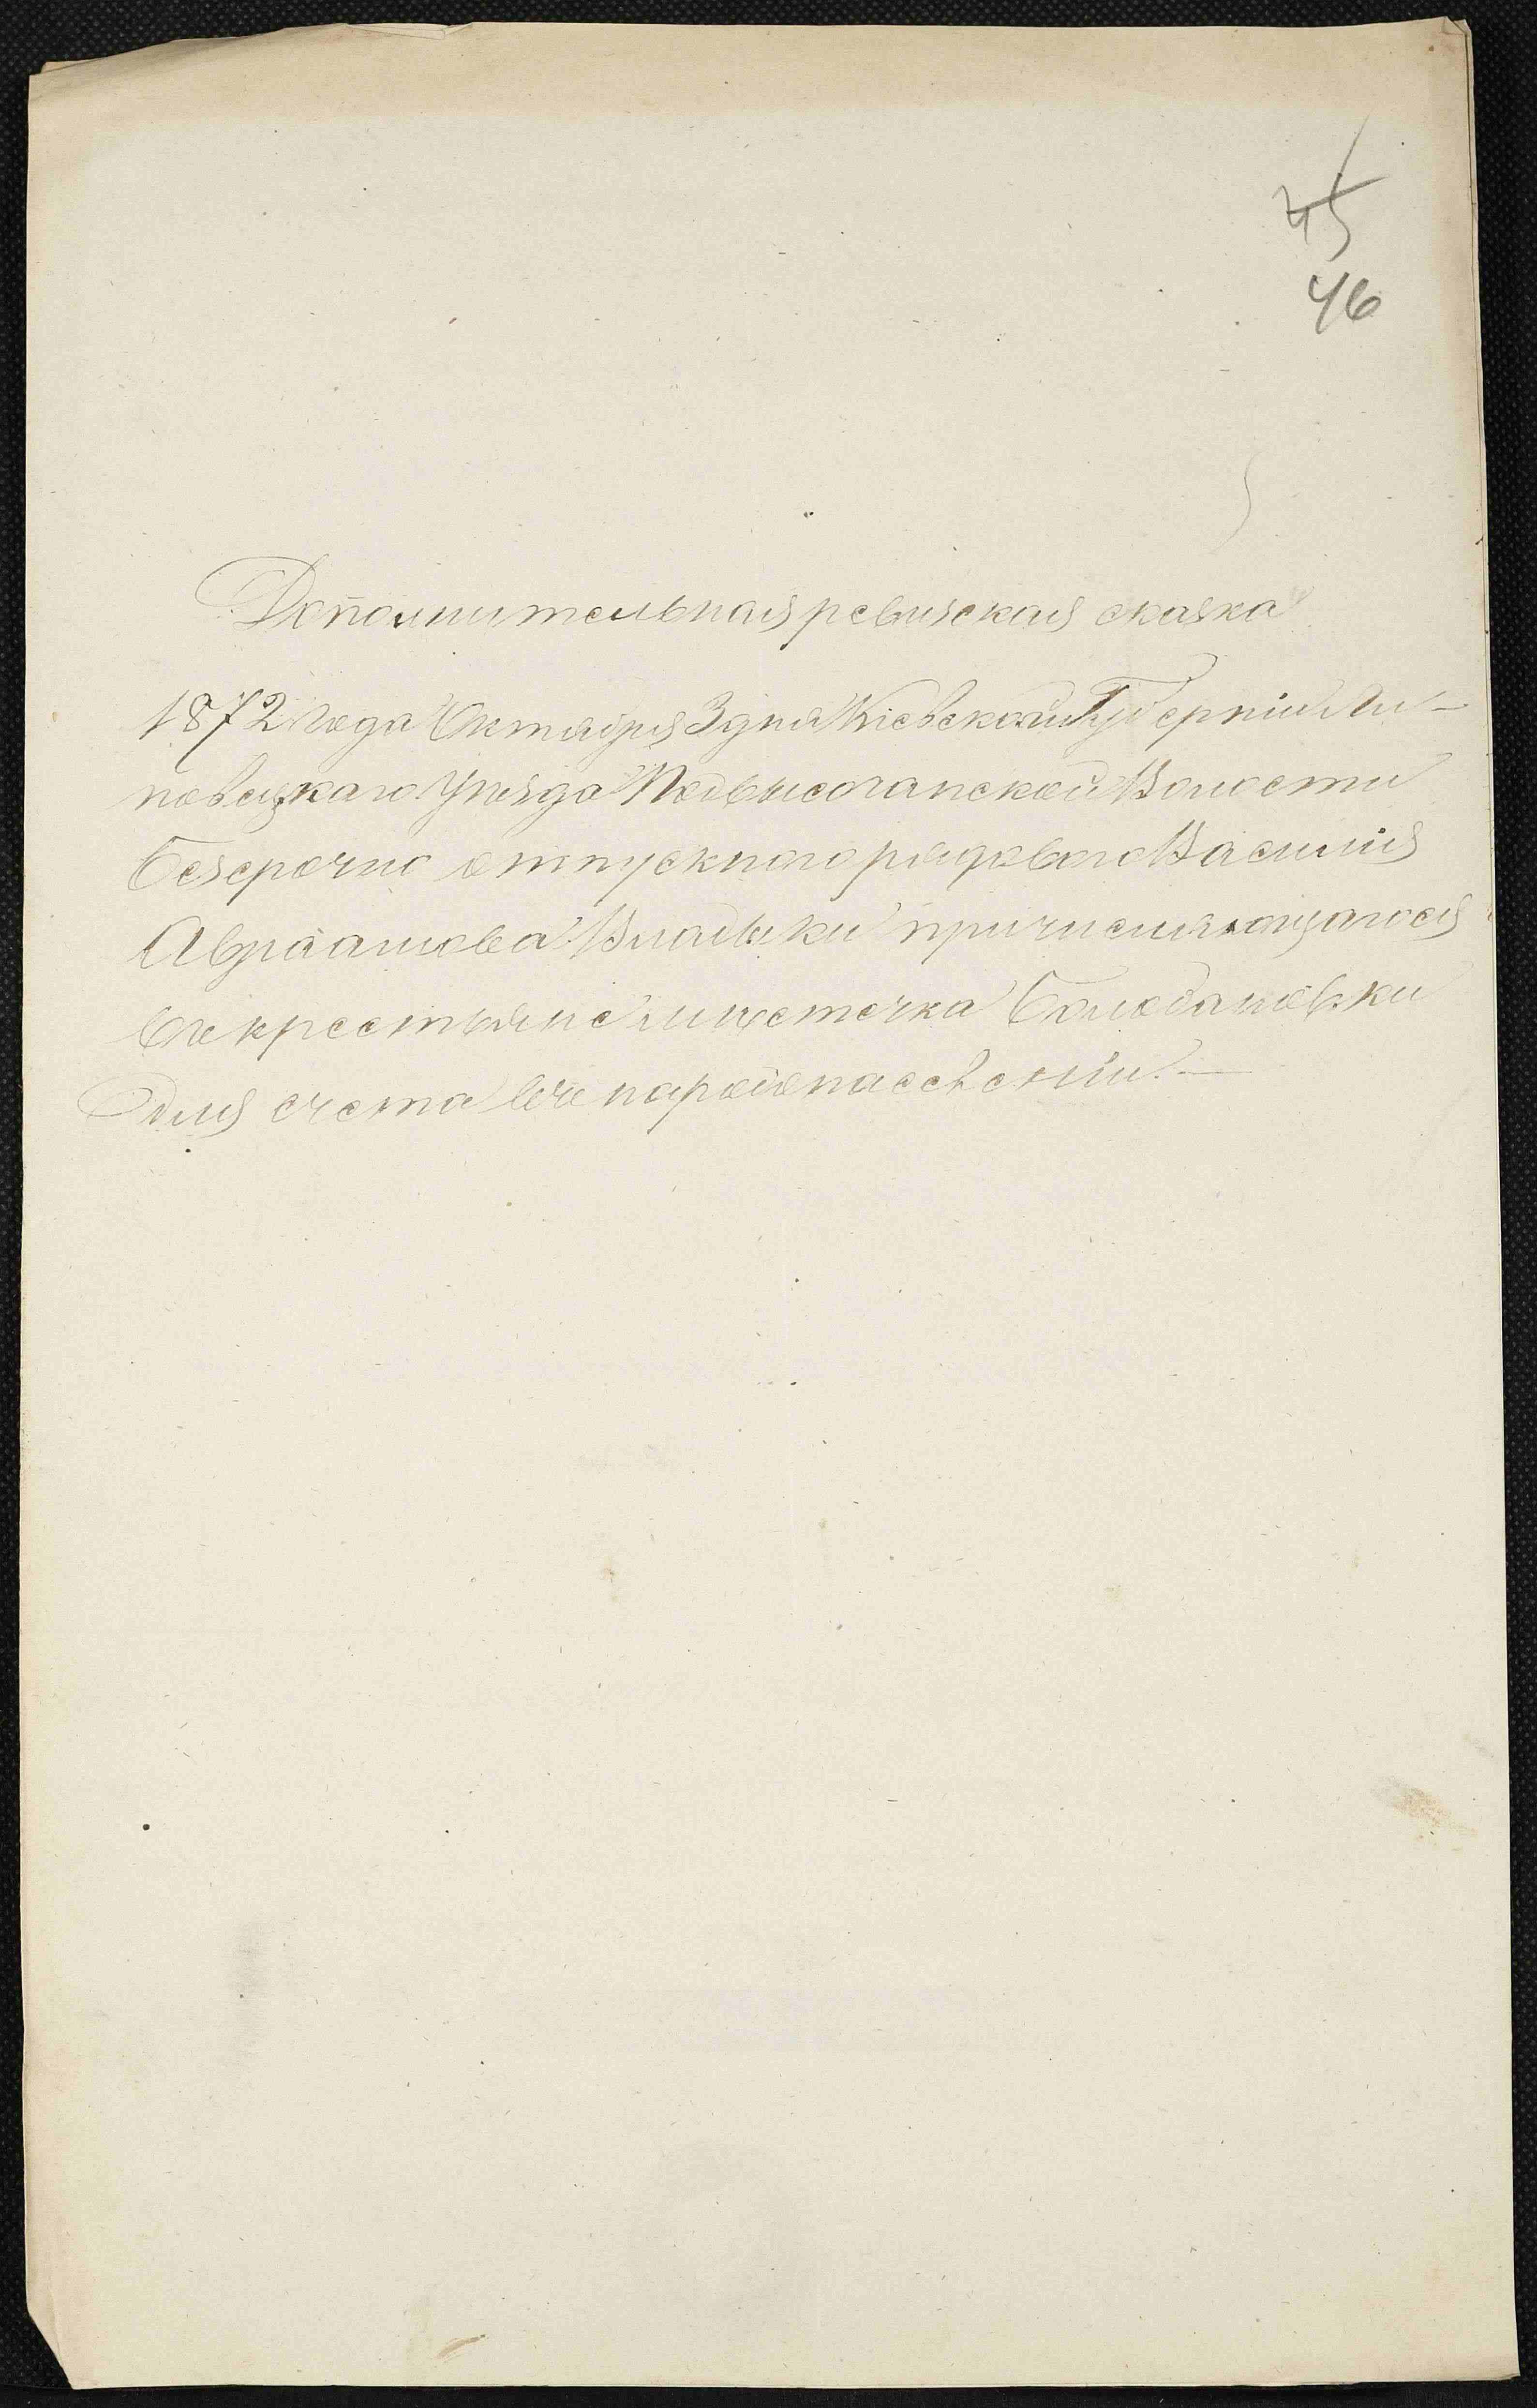 45
46
Дополнительная ревизская сказка
1872 года Октября 3 дня Кіевской Губерніи Ли-
повецкаго Уѣзда Подвысочанской Волости
безсрочно отпускного рядового Василія
Авраамова Владыки причисляющагося
въ крестьяне мѣстечка
для счета въ народонаселеніи. —